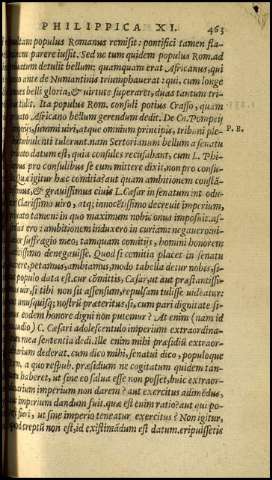 PHILIPPICA XI. 463
populus Romanus remisit: pontifici tamen fla-
parere iussit. Sed ne tum quidem populus Rom. ad
detulit bellum: quamquam erat Africanus, qui
ante de Numantinis triumphauerat: qui, cum longe
belli gloria, & uirtute superaret, duas tantum tri
tulit. Ita populus Rom. consuli potius Crasso, quam
Africano bellum gerendum dedit. De Cn. Pompeij
summi uiri, atque omnium principis, tribuni ple-
tulerunt. nam Sertorianum bellum a senatu
datum est, quia consules recusabant, cum L. Phi-
pro consulibus se eum mittere dixit, non pro consu-
igitur haec comitia? aut quam ambitionem constā-
& grauissimus ciuis L. Caesar in senatum
Clarissimo uiro, atq; innocētissimo decreuit imperium,
tamen: in quo maximum nobis onus imposuit. as-
ero: ambitionem induxero in curiam: negauero:
suffragio meo, tamquam comitijs, homini honorem
denegauisse. Quod si comitia placet in senatu
petamus, ambiamus, modo tabella detur nobis, si-
populo data est. cur cōmittis, Caesar, ut aut praestātissi-
si tibi non sit assensum, repulsam tulisse uideatur:
unusquisq; nostrū praeteritus sit, cum pari dignitate si-
eodem honore digni non putemur? At enim (nam id
C. Caesari adolescentulo imperium extraordina-
mea sententia dedi. Ille enim mihi praesidiū extraor-
dederat. cum dico mihi, senatui dico, populoque
a quo resp. praesidium ne cogitatum quidem tan-
haberet, ut sine eo salua esse non posset, huic extraor-
imperium non darem? aut exercitus adimēdus,
imperium dandum fuit. quae est enim ratio? aut qui po-
ut sine imperio teneatur exercitus? Non igitur,
ereptū non est, id existimādum est datum. eripuissetis
P. R.